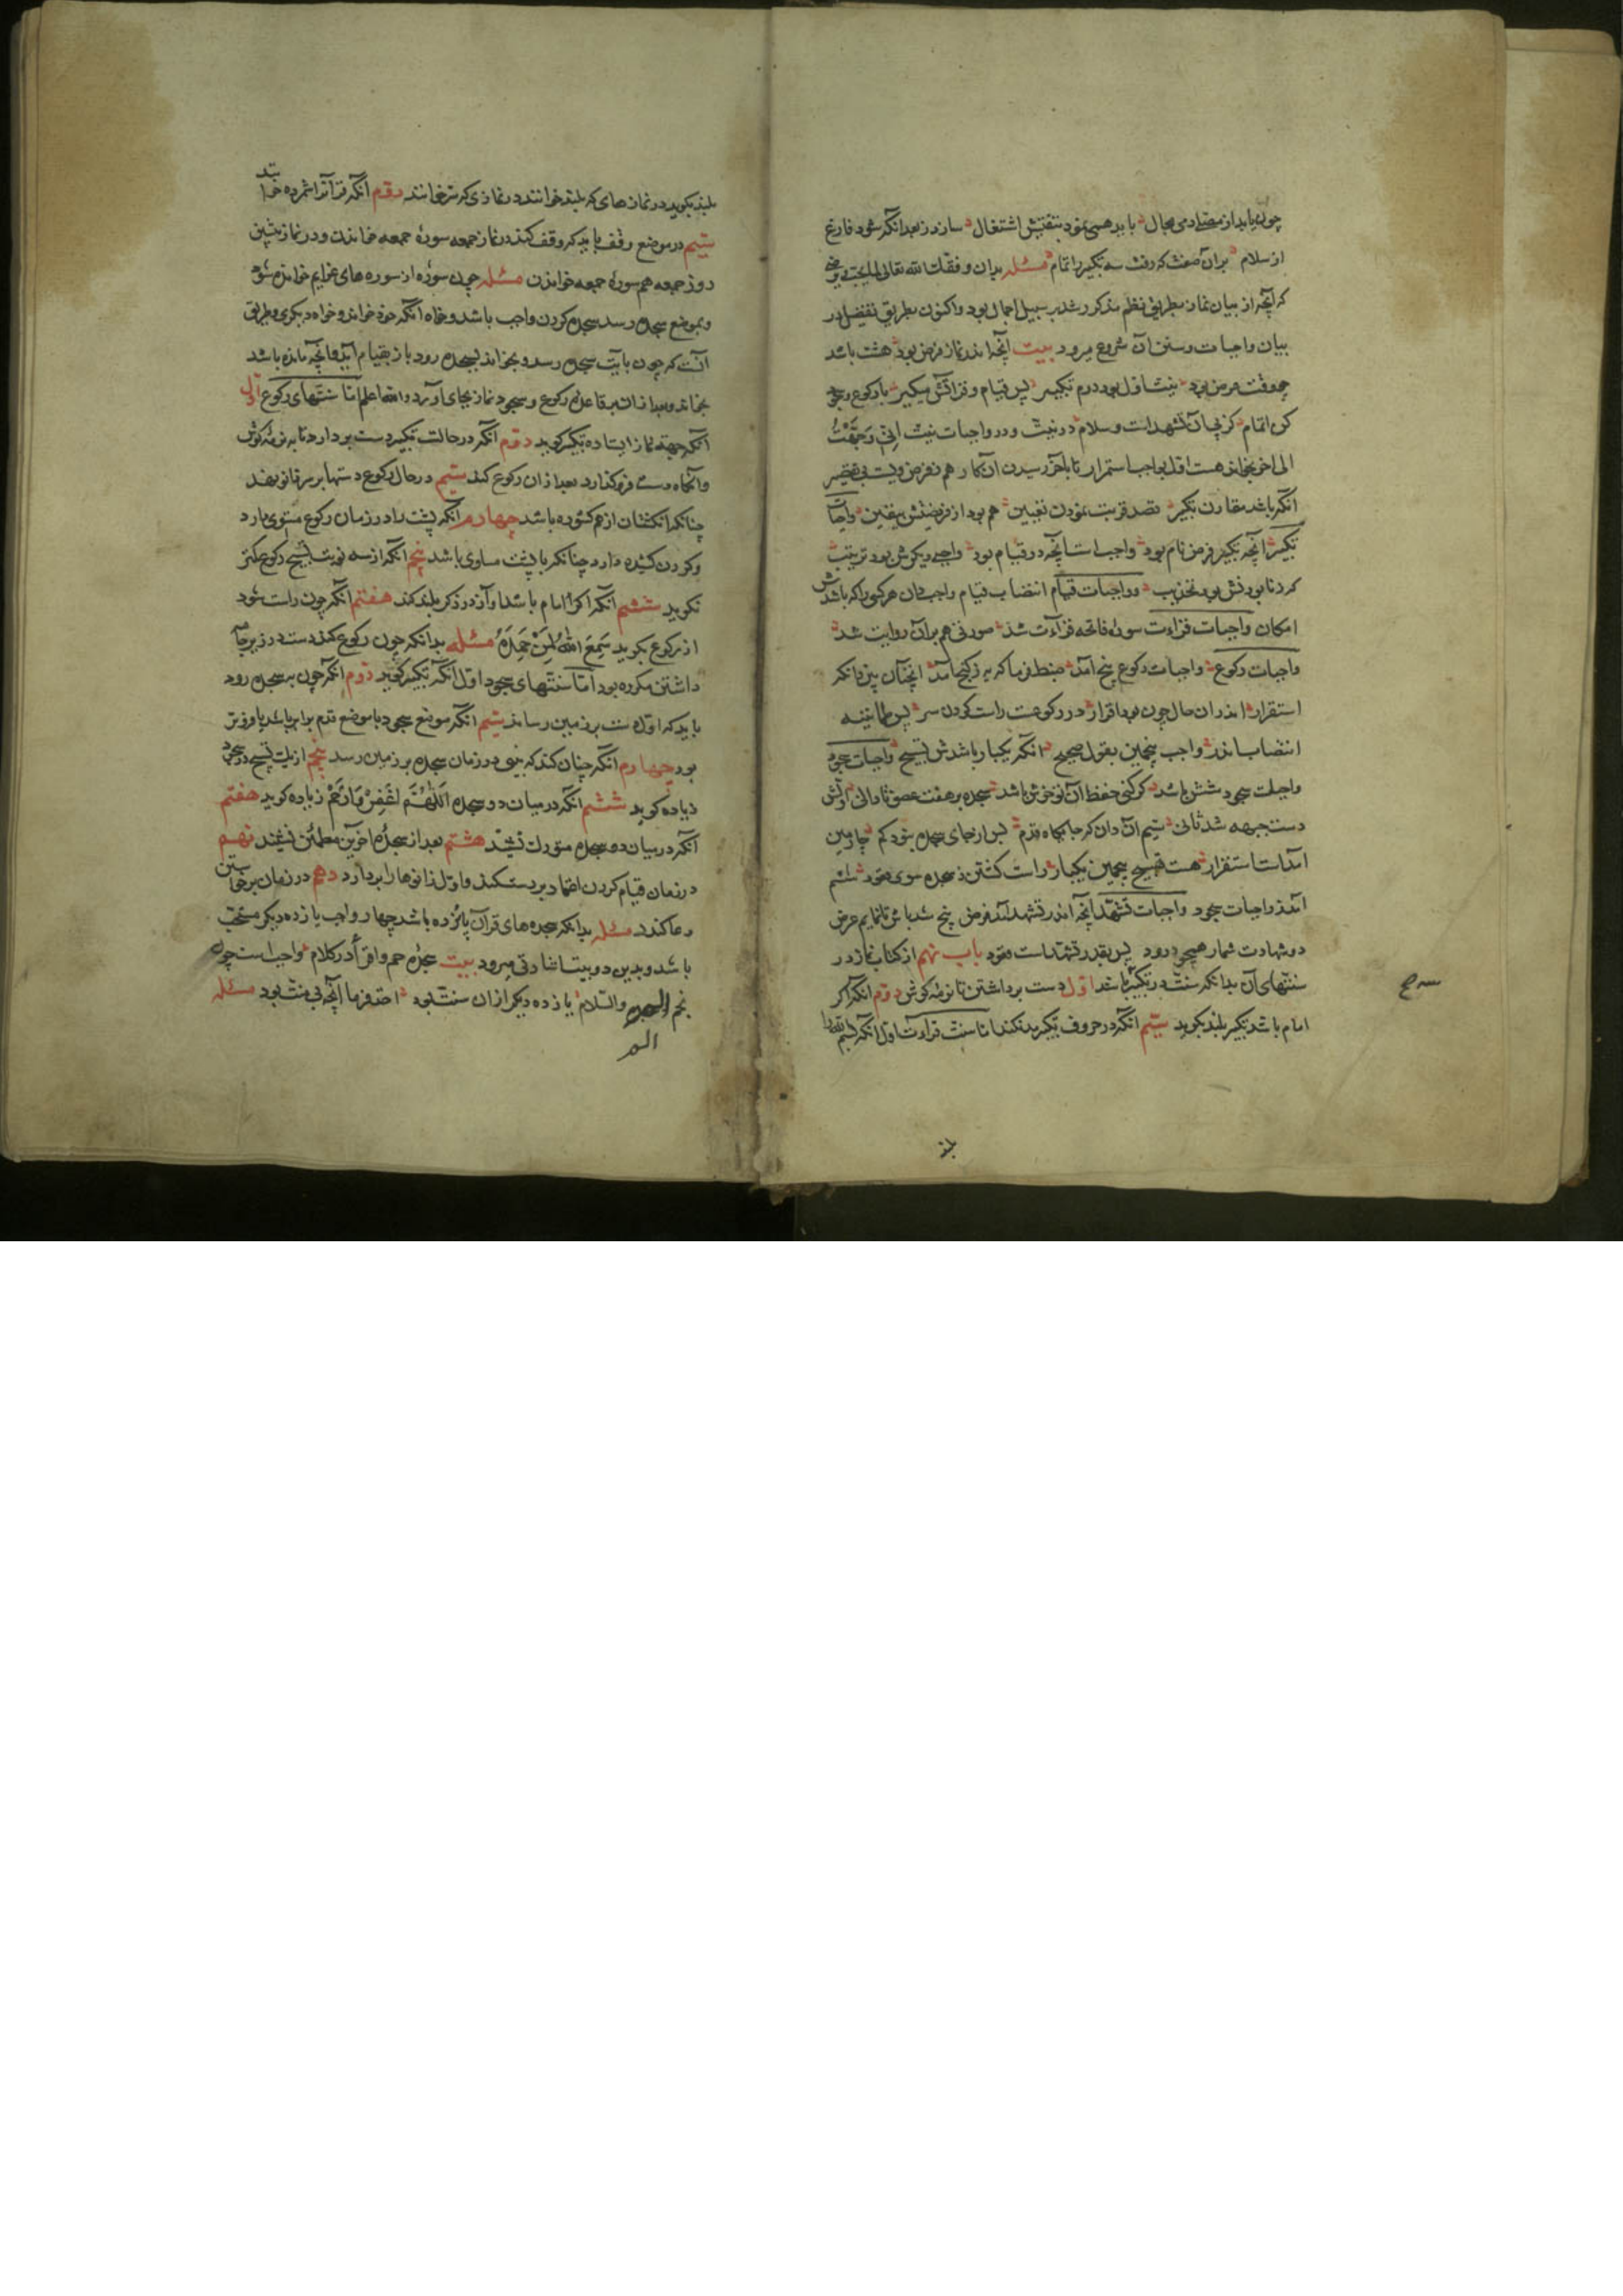 چون یابد از مصلی مجال باید همی نمود بتفتیش اشتغال سازند بعد انکه شود فارغ
از سلام بر آن صفت که رفت سه تکبیر را تمام مسئله بدان وفقک الله تعالی لما یحب و یرضی
که آنچه از بیان نماز بطریق نظم مذکور شد بر سبیل اجمال بود و اکنون بطریق تفصیل در
بیان واجبات و سنن آن شروع میرود بیت آنچه اندر نماز فرض بود هشت باشد
چو وقت عرض بود نیت اول بود دوم تکبیر پس قیام و قرائتش میکیر با رکوع و سجود
کن اتمام کز پی آن تشهدست و سلام در نیت و در واجبات نیت انی وجهت
الی اخر بخواند هست اقل واجب استمرار تا بآخر رسیدن آن کار هم نفرض
انکه باشد مقارن تکبیر قصد قربت نمودن تعیین هم بود از فریضتش بیقین واجبات
تکبیر آنچه تکبیر فرض نام بود واجبست آنچه در قیام بود
واجبات قیام انتصاب قیام واجب دان هر کسی را که باشدش
امکان واجبات قراءت سوره فاتحه قراءت شد سورتی هم بر آن روایت شد
واجبات رکوع واجبات رکوع پنج آمد ضبط فرما که به ز کنج آمد
استقرار اندران حال چون بود اقرار در رکوعت راست کردن سر پس طمانینه
انتصاب اندر واجب پنجمین بقول صحیح انکه یکبار باشدش تسبیح واجبات سجود
واجبات سجود شش باشد کر کنی حفظ آن تو خوش باشد سجده بر هفت عضو تا دانی اولش
دست جبهه شد ثانی سیم آن دان که جایکاه قدم پس از جای سجده نبود کم چارمین
آمدست استقرار هست تسبیح پنجمین یکبار راست کشتن ز سجده سوی قعود ششم
آمد ز واجبات سجود واجبات تشهد آنچه اندر تشهد آمد فرض پنج شد باش تا نمایم عرض
دو شهادت شمار همچو درود پس بقدر تشهدست قعود باب نهم از کتاب نماز در
سنتهای آن بدانکه سنت در تکبیر باشد اول دست برداشتن تا نرمه کوش دوم انکه اکر
امام باشد تکبیر بلند بکوید سیم انکه در حروف تکبیر مد نکند اما سنت قراءت اول انکه بسم الله را
بلند
بلند بکوید در نمازهای که بلند خوانند در نمازی که نرم خوانند دوم انکه قرآنرا شمرده خواند
سیم در موضع وقف باید که وقف کند در نماز جمعه سوره جمعه خواندن و در نماز پشین
روز جمعه هم سوره جمعه خواندن مسئله چون سوره از سوره های عزایم خوانده شود
و بموضع سجده رسد سجده کردن واجب باشد خواه انکه خود خواند و خواه دیکری و طریق
آنست که چون بآیت سجده رسد و بخواند بسجده رود باز بقیام آید و آنچه مانده باشد
بخواند و بعد از آن بر قاعده رکوع و سجود نماز بجای آورد والله اعلم اما سنتهای رکوع اول
آنکه جهة نماز ایستاده تکبیر کوید دوم انکه در حالت تکبیر دست بردارد تا به نرمه کوش
وانکاه دست فرو کذارد بعد از ان رکوع کند سیم در حال رکوع دستها بر سر زانو نهد
چنانکه انکشتان از هم کشوده باشد چهارم انکه پشت را در زمان رکوع مستوی دارد
و کردن کشیده دارد چنانکه با پشت مساوی باشد پنجم انکه از سه نوبت تسبیح رکوع کمتر
نکوید ششم انکه اکر امام باشد آواز در ذکر بلند کند هفتم انکه چون راست شود
از رکوع بکوید سمع الله لمن حمده مسئله بدانکه چون رکوع کند دست در زیر جامه
داشتن مکروه بود اما سنتهای سجود اول انکه تکبیر کوید دوم انکه چون به سجده رود
باید که اول دست بر زمین رساند سیم انکه موضع سجود با موضع قدم برابر باشد یا فروتر
بود چهارم انکه چنان کند که بینی در زمان سجده بر زمین رسد پنجم از یک تسبیح در سجود
زیاده کوید ششم انکه در میان دو سجده اللهم اغفر وارحم زیاده کوید هفتم
آنکه در میان دو سجده متورک نشیند هشتم بعد از سجده آخرین مطمئن نشیند نهم
در زمان قیام کردن اعتماد بر دست کند و اول زانوها را بردارد دهم در زمان برخاستن
دعا کند مسئله بدانکه سجده های قرآن پانزده باشد چهار واجب یازده دیکر مستحب
باشد و بدین دو بیت اشارتی میرود بیت سجده حم و اقرأ در کلام واجب است چون
نجم و السلام یازده دیکر از ان سنت بود اخذ فرما آنچه بی منت بود مسئله
الم